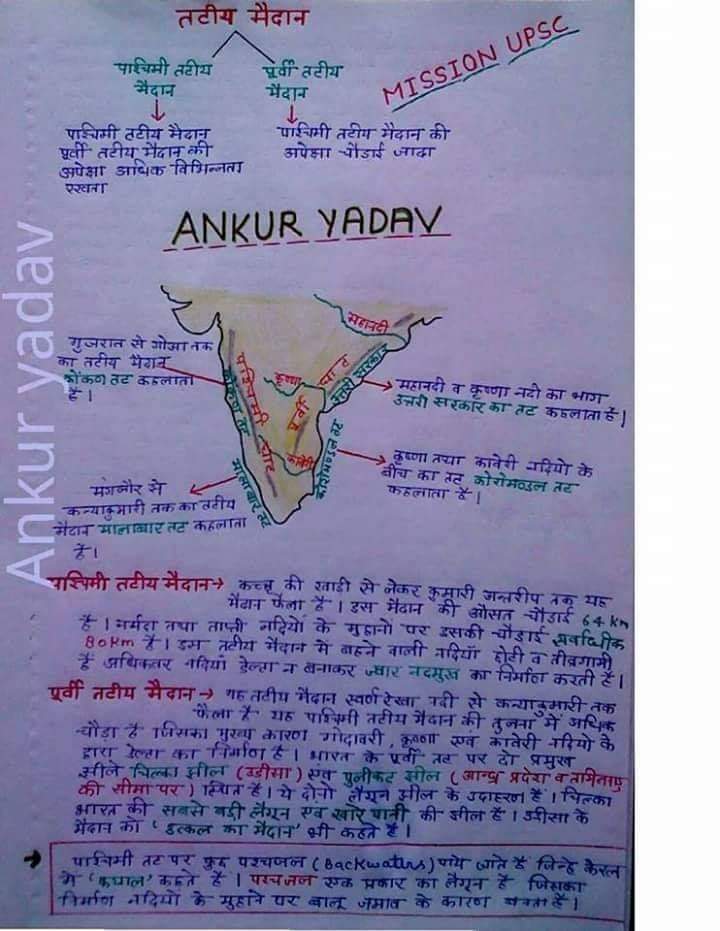 तटीय मैदान
पाश्चिमी तटीय
मैदान
पूर्वी तटीय
मैदान
MISSION UPSC
पाश्चिमी तटीय मैदान
पूर्वी तटीय मैदान की
अपेक्षा अधिक विभिन्नता
रखता
पाश्चिमी तटीय मैदान की
अपेक्षा चौडाई जादा
ANKUR YADAV
Ankur yadav
महानदी
गुजरात से गोआ तक
का तटीय मैदान
कोंकण तट कहलाता
है।
पाश्चिमी घाट
कोंकण तट
कृष्णा
पूर्वी घाट
उत्तरी सरकार
महानदी व कृष्णा नदी का भाग
उत्तरी सरकार का तट कहलाता है।
कावेरी
कोरोमण्डल तट
कृष्णा तथा कावेरी नदियो के
बीच का तट कोरोमण्डल तट
कहलाता है।
मालाबार तट
मंगलौर से
कन्याकुमारी तक का तटीय
मैदान मालाबार तट कहलाता
है।
पाश्चिमी तटीय मैदान→ कच्छ की खाडी से लेकर कुमारी अन्तरीप तक यह
मैदान फैला है। इस मैदान की औसत चौडाई 64 km
है। नर्मदा तथा ताप्ती नदियों के मुहानों पर इसकी चौडाई सर्वाधिक
80 Km है। इस तटीय मैदान मे बहने वाली नदियाँ छोटी व तीव्रगामी
है अधिकतर नदियाँ डेल्टा न बनाकर ज्वार नदमुख का निर्माण करती है।
पूर्वी तटीय मैदान→ यह तटीय मैदान स्वर्णरेखा नदी से कन्याकुमारी तक
फैला है यह पाश्चिमी तटीय मैदान की तुलना मे अधिक
चौडा है जिसका मुख्य कारण गोदावरी, कृष्णा एवं कावेरी नदियो के
द्वारा डेल्टा का निर्माण है। भारत के पूर्वी तट पर दो प्रमुख
झीले चिल्का झील (उडीसा) एवं पुलीकट झील (आन्ध्र प्रदेश व तमिलनाडु
की सीमा पर) स्थित है। ये दोनो लैगून झील के उदाहरण है। चिल्का
भारत की सबसे बडी लैगून एवं खारे पानी की झील है। उडीसा के
मैदान को 'उत्कल का मैदान' भी कहते है।
→ पाश्चिमी तट पर कुछ पश्चजल (Backwaters) पाये जाते है जिन्हे केरल
मे 'कयाल' कहते है। पश्चजल एक प्रकार का लैगून है जिसका
निर्माण नदियो के मुहाने पर बालू जमाव के कारण बनता है।